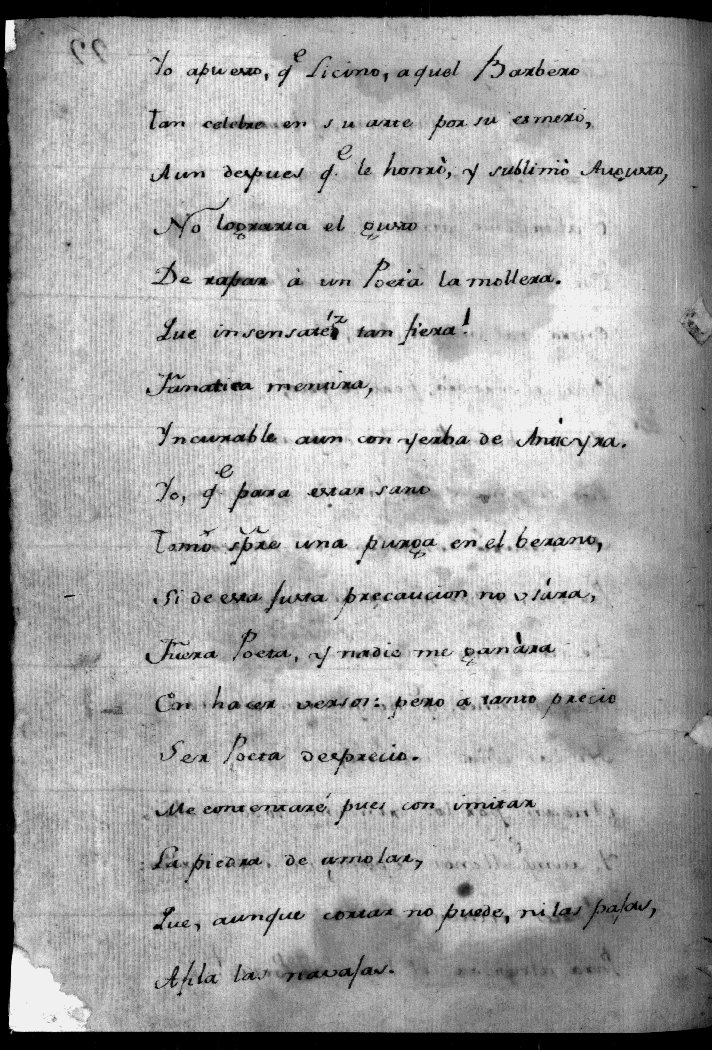 Yo apuesto, q.e Licino, aquel Barbero
tan celebre en su arte por su esmero,
Aun despues q.e le honrò, y sublimò Augusto,
No lograria el gusto
De rapar à un Poeta la mollera.
Que insensatéz, tan fiera!
Fanatica mentira,
Yncurable aun con yerba de Anticyra.
Yo, q.e para estar sano
tomo spre una purga en el berano,
Si de esta justa precaucion no usára,
Fuera Poeta, y nadie me ganàra
En hacer versos: pero à tanto precio
Ser Poeta desprecio.
Me contentaré pues con imitar
La piedra de amolar,
Que, aunque cortar no puede, ni las pajas,
Afila las navajas.